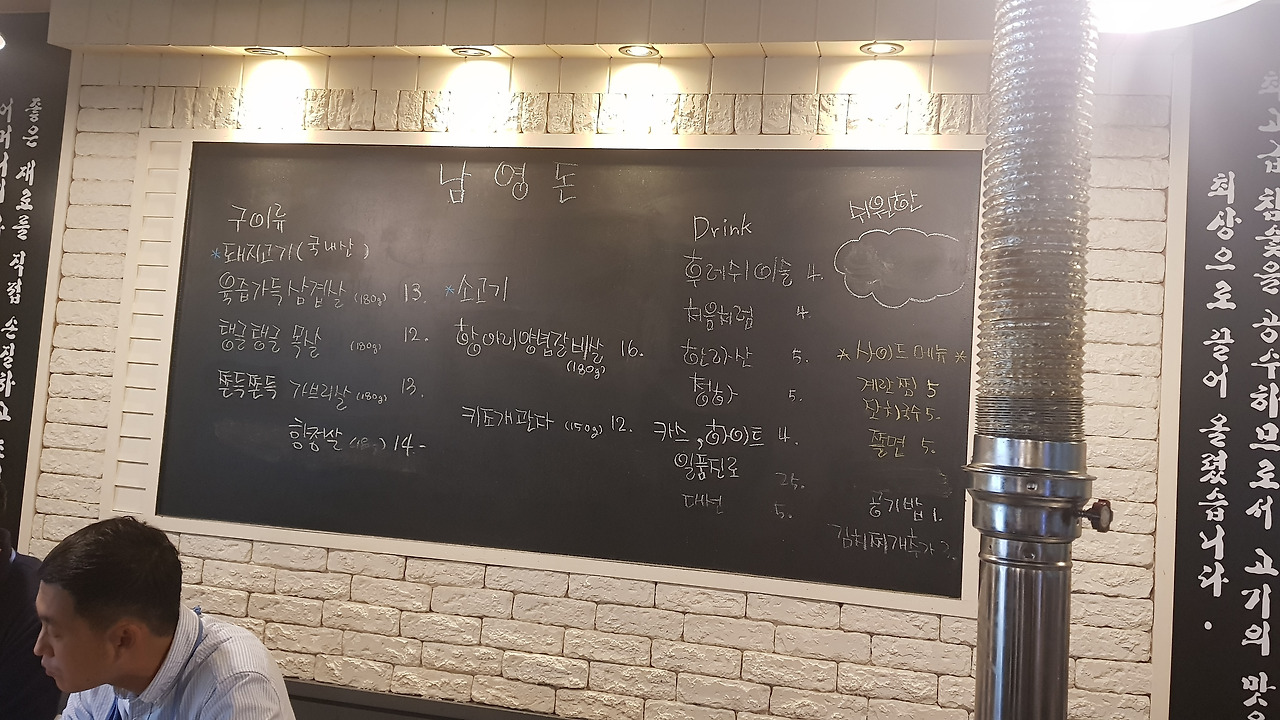 남영돈
구이류
*돼지고기(국내산)
육즙가득 삼겹살 (180g) 13.
탱글탱글 목살 (180g) 12.
쫀득쫀득 가브리살 (180g) 13.
항정살 (180g) 14-
*소고기
항아리양념갈비살 16.
(180g)
키조개관자 (150g) 12.
Drink
후레쉬이슬 4.
처음처럼 4.
한라산 5.
청하 5.
카스, 하이트 4.
일품진로 25.
대선 5.
쉬원한
*사이드메뉴*
계란찜 5
잔치국수 5-
쫄면 5.
공기밥 1.
김치찌개추가 2.
좋은 재료를 직접 손질하고
최고급 참숯을 공수하므로서 고기의 맛을
최상으로 끌어 올렸습니다.